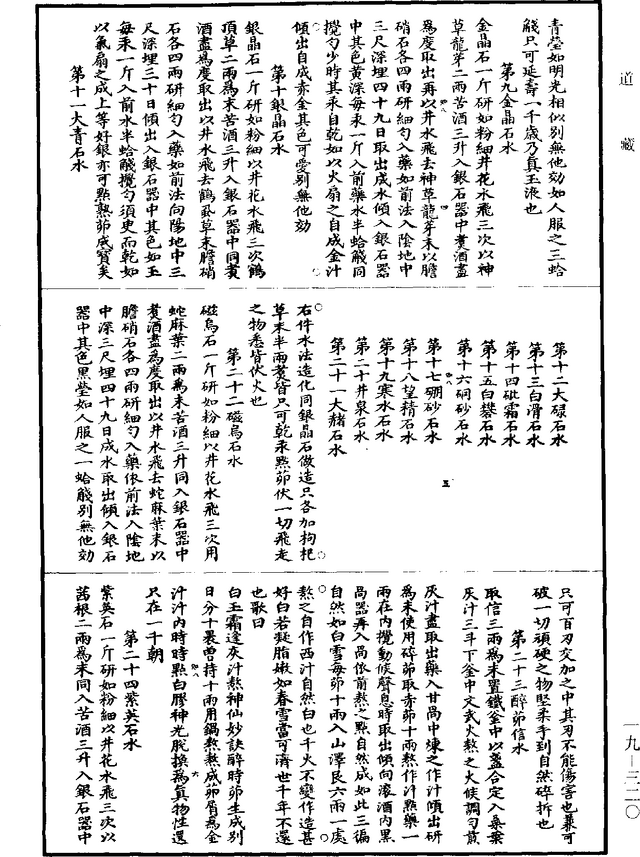 道藏
青瑩如明光相似別無他効如人服之三蛤
䗩只可延壽一千歳乃真玉液也
第九金晶石水
金晶石一斤研如粉細井花水飛三次以神
草龍芽二兩苦酒三升入銀石器中煑酒盡
爲度取出再以井水飛去神草龍芽末以膽
硝石各四兩研細勻入藥如前法入陰地中
三尺深埋四十九日取出成水傾入銀石器
中其色黄深每汞一斤入前藥水半蛤䗩同
攪勻少時其汞自乾如以火扇之自成金汁
傾出自成赤金其色可愛別無他効
第十銀晶石水
銀晶石一斤研如粉細以井花水飛三次鶴
頂草二兩爲末苦酒三升入銀石器中同煑
酒盡爲度取出以井水飛去鶴虱草末膽硝
石各四兩研細勻入藥如前法向陽地中三
尺深埋三十日傾出入銀石器中其色如玉
每汞一斤入前水半蛤䗩攪勻須臾而乾如
以氣扇之成上等好銀亦可點熟茆成寳矣
第十一大青石水
第十二大碌石水
第十三白滑石水
第十四砒霜石水
第十五白礬石水
第十六硇砂石水
第十七硼砂石水
第十八望精石水
第十九寒水石水
第二十井泉石水
第二十一大赭石水
右件水法造化同銀晶石倣造只各加枸杞
草末半兩煑皆只可乾汞點茆伏一切飛走
之物悉皆伏火也
第二十二磁烏石水
磁烏石一斤研如粉細以井花水飛三次用
蛇麻葉二兩爲末苦酒三升同入銀石器中
煑酒盡爲度取出以井水飛去蛇麻葉末以
膽硝石各四兩研細勻入藥依前法入陰地
中深三尺埋四十九日成水取出傾入銀石
器中其色黒瑩如人服之一蛤䗩別無他効
五
只可百刃交加之中其刃不能傷害也兼可
破一切頑硬之物堅柔手到自然碎拆也
第二十三醉茆信水
取信三兩爲末置鐵釜中以盞合定入桑葉
灰汁三斗下釜中文武火熬之火候調勻煎
灰汁盡取出藥入甘鍋中煉之作汁傾出研
爲末使用碎茆取赤茆十兩熬作汁點藥一
兩在內攪動候聲息時取出傾向滚酒內黒
鍋器再入鍋依前熬之點自然成如此三徧
自然如白雪每茆十兩入山澤艮六兩一處
熬之自作西汁自然白也千火不變作造甚
好白若凝脂嫩如春雪當可濟世千年不還
也歌曰
白玉霜逢灰汁熬神仙妙訣醉時茆生成別
日分十最曽持十兩用鍋熬熬成茆屑爲金
汁汁內時時點白膠神光脫換爲真物性還
只在一千朝
第二十四紫英石水
紫英石一斤研如粉細以井花水飛三次以
茜根二兩爲末同入苦酒三升入銀石器中
一九-三二〇